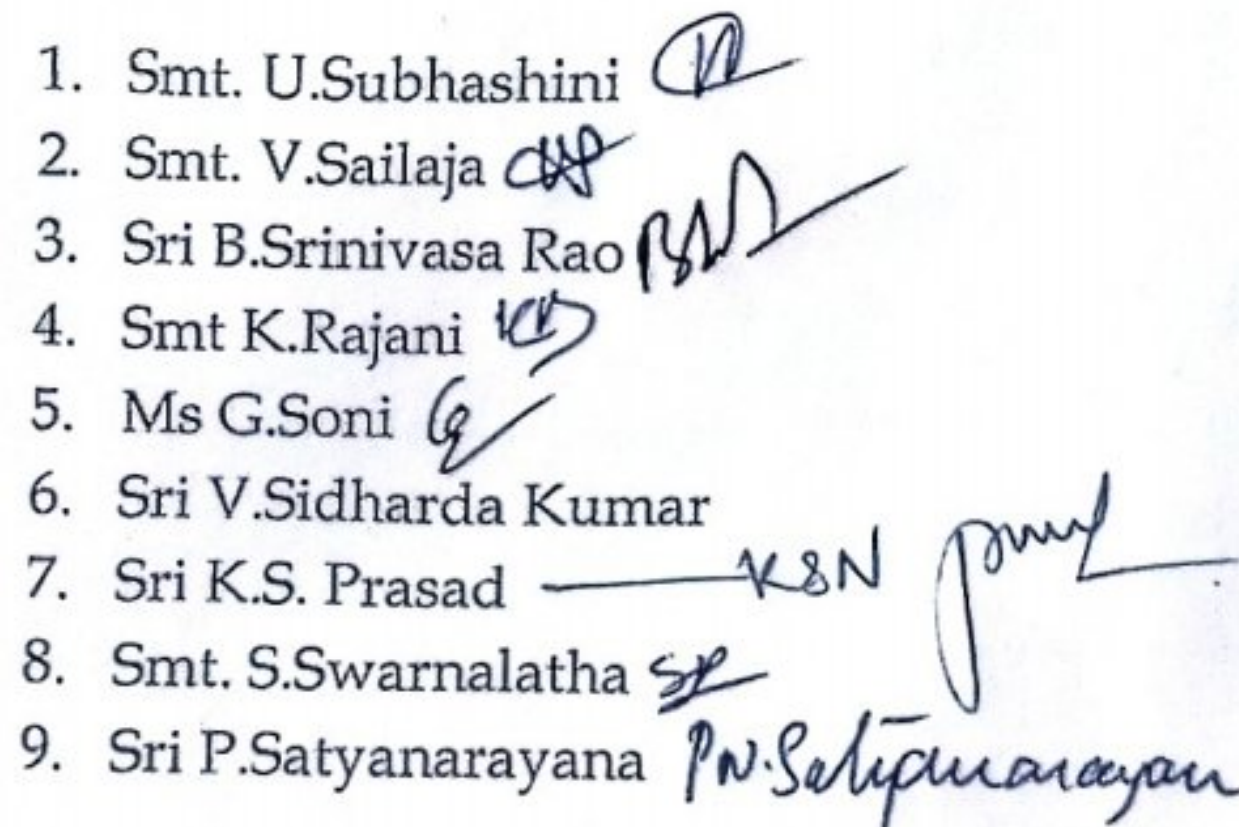 1. Smt. U.Subhashini
2. Smt. V.Sailaja
3. Sri B.Srinivasa Rao
4. Smt K.Rajani
5. Ms G.Soni
6. Sri V.Sidharda Kumar
7. Sri K.S. Prasad KSN
8. Smt. S.Swarnalatha
9. Sri P.Satyanarayana PN.Satyanarayan